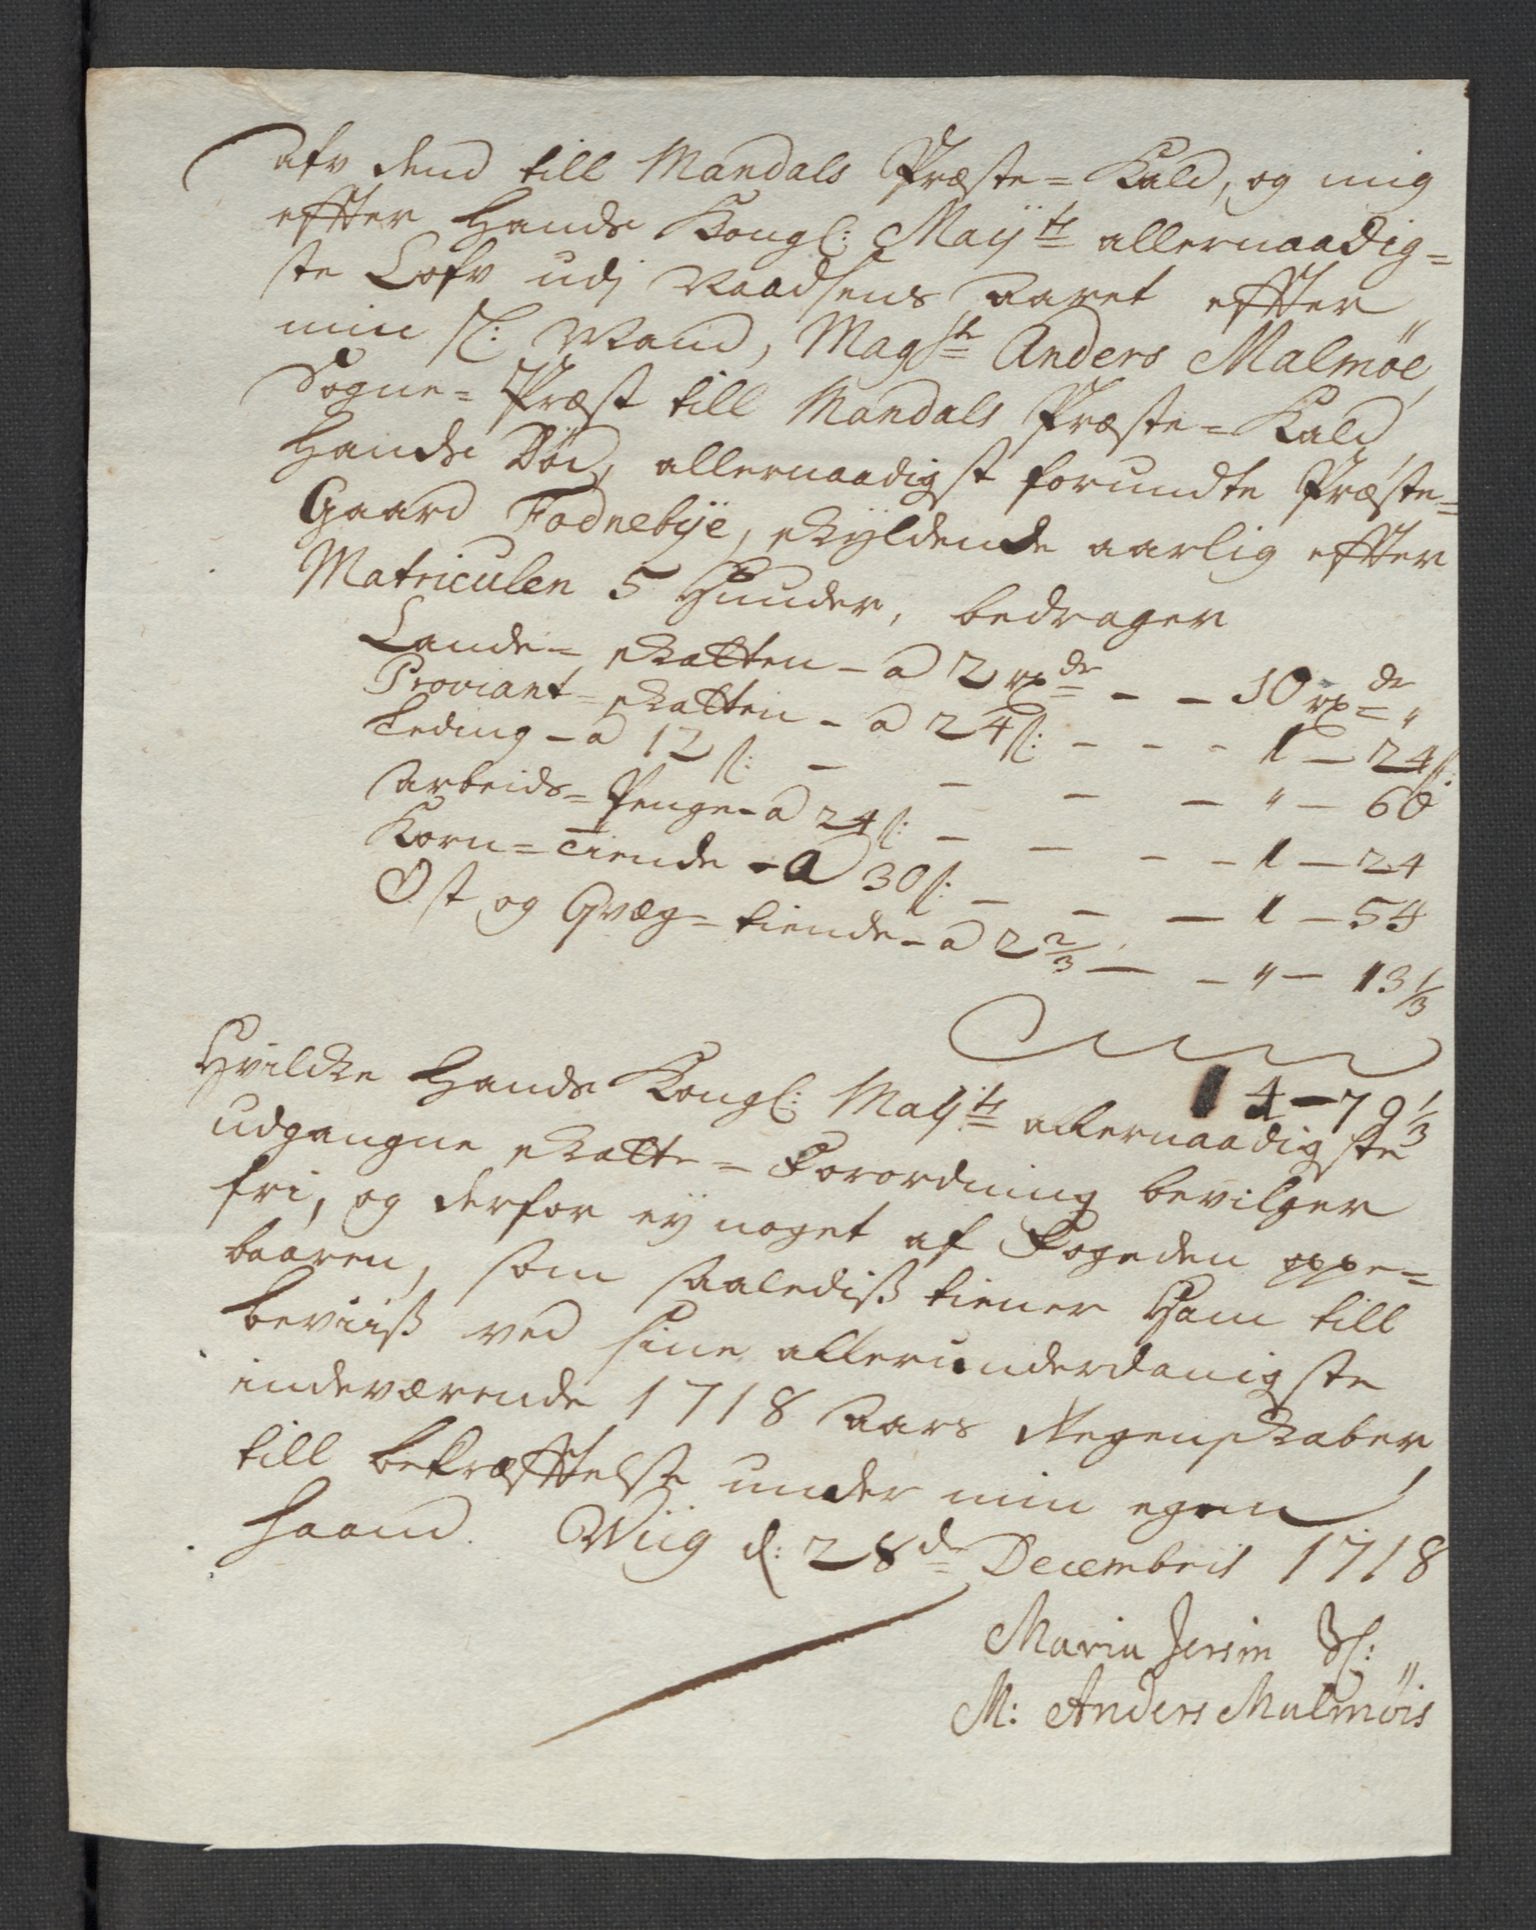 Afv dend till Mandals Præste=Kald, og mig
effter Hands Kongl: Maÿ:ts allernaadig=
ste Lofv udj Naadsens Aaret effter
min Sl: Mand, Mag:str Anders Malmøe,
Sogne=Præst till Mandals Præste=Kald,
Hands Død, allernaadigst forundte Præste=
Gaard Fodnebÿe, skyldende aarlig effter
Matriculen 5 Huuder, bedrager
Lands=skatten - a 2 rx:dr - - 10 rx:dr "
Proviant=skatten - a 24 s: - - - 1 - 24 s:
Leding - a 12 s: - - - - " - 60
Arbeids=Penge - a 24 s: - - - - 1 - 24
Korn=Tiende - a 30 s: - - - 1 - 54
Ost og Qvæg=tiende - a 2 2/3 - - " - 13 1/3
14 - 79 1/3
Hvilcke Hands Kongl: Maÿ:ts allernaadigste
udgangne skatte=Forordning bevilger
fri, og derfor eÿ noget af Fogeden oppe=
baaren, som saalediß tiener Ham till
beviiß ved sine allerunderdanigste
indeværende 1718 Aars Regenskaber,
till bekræfftelse under min egen
Haand. Wiig d: 28:de Decembris 1718
Maria Jersin Sl:
M: Anders Malmøis